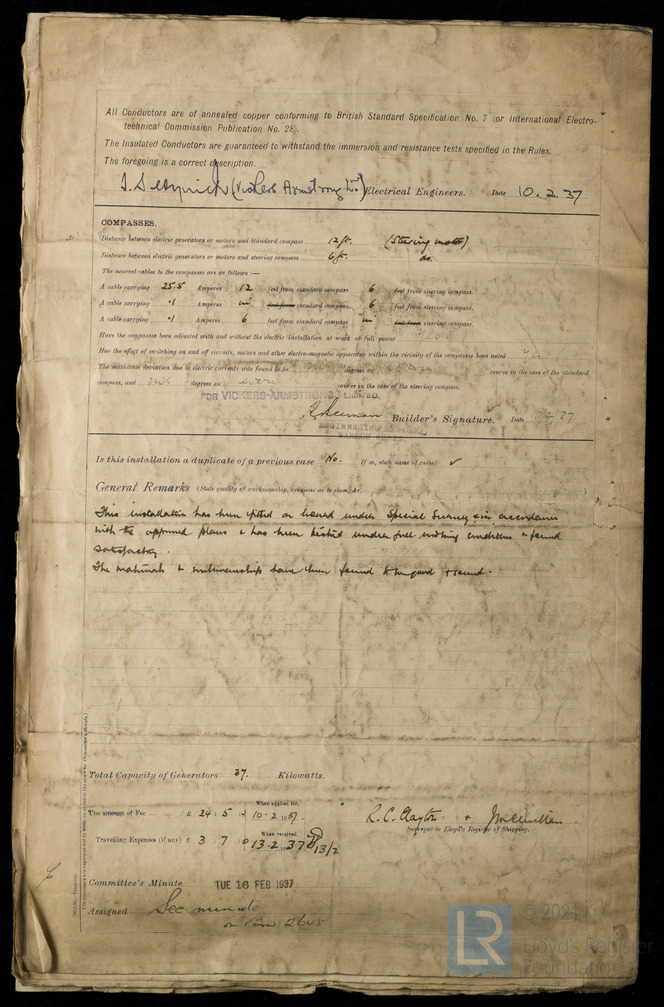 All Conductors are of annealed copper conforming to British Standard Specification No. 7 (or International Electro-
technical Commission Publication No. 28).
The Insulated Conductors are guaranteed to withstand the immersion and resistance tests specified in the Rules.
The foregoing is a correct description.
(Vickers Armstrong Ltd) Electrical Engineers. Date 10.2.37
COMPASSES.
Distance between electric generators or motors and standard compass 12 ft. (Steering motor)
Distance between electric generators or motors and steering compass 6 ft. do.
The nearest cables to the compasses are as follows:—
A cable carrying 25.5 Ampères 12 feet from standard compass 6 feet from steering compass.
A cable carrying .1 Ampères in feet from standard compass 6 feet from steering compass.
A cable carrying .1 Ampères 6 feet from standard compass in feet from steering compass.
Have the compasses been adjusted with and without the electric installation at work at full power
Has the effect of switching on and off circuits, motors and other electro-magnetic apparatus within the vicinity of the compasses been noted Yes
The maximum deviation due to electric currents was found to be degrees on course in the case of the standard
compass, and Nil degrees on every course in the case of the steering compass.
FOR VICKERS-ARMSTRONGS LIMITED,
Builder's Signature. Date
Is this installation a duplicate of a previous case No. If so, state name of vessel ✓
General Remarks (State quality of workmanship, opinions as to class, &c.
This installation has been fitted on board under Special Survey & in accordance
with the approved plans & has been tested under full working conditions & found
satisfactory.
The materials & workmanship have been found to be good & sound.
Total Capacity of Generators 37. Kilowatts.
When applied for,
The amount of Fee ... £ 24 : 5 : 10.2.1937.
R.C. Clayton &
Surveyor to Lloyd's Register of Shipping.
When received,
Travelling Expenses (if any) £ 3 : 7 : 0 13.2.1937 13/2
Committee's Minute TUE 16 FEB 1937
Assigned See minute
on
LR
© 2021
Lloyd's Register
Foundation